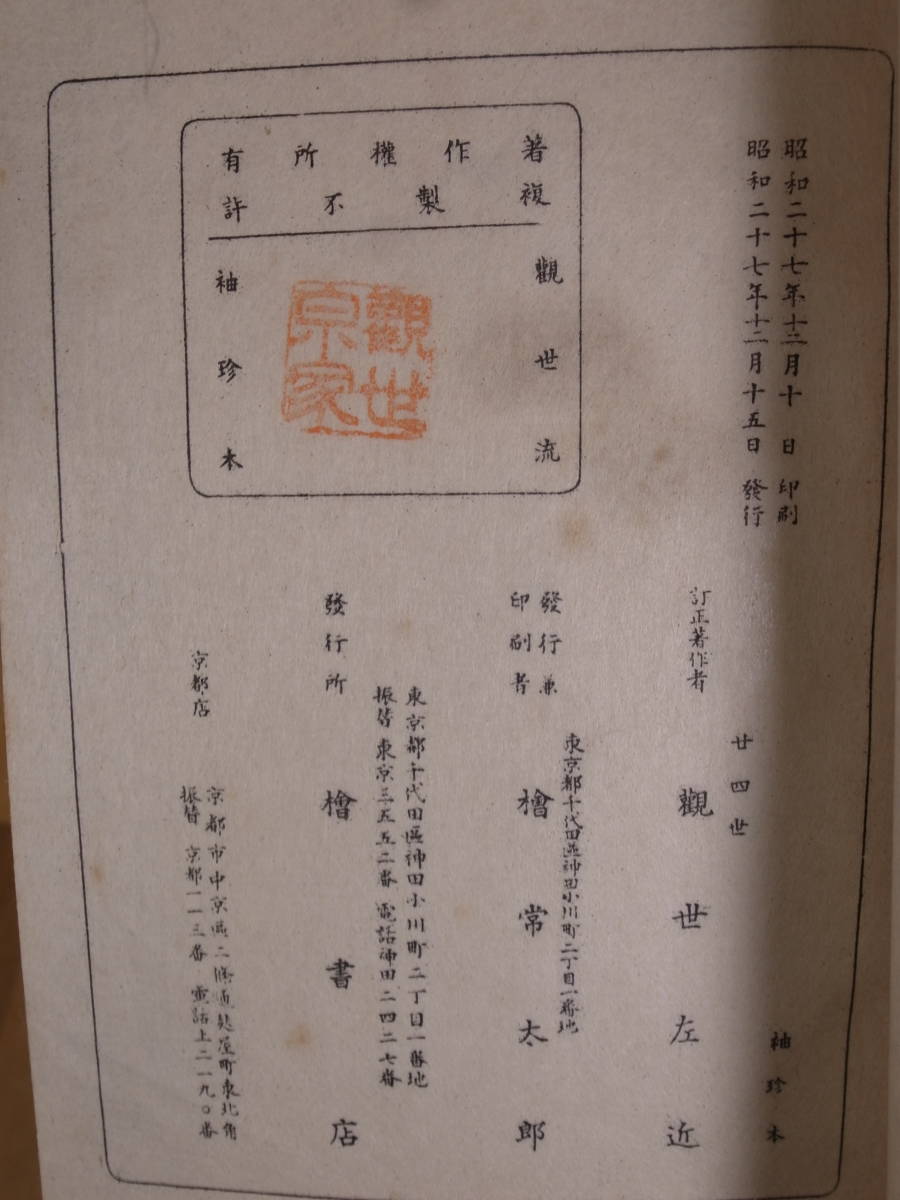 昭和二十七年十二月十日印刷
昭和二十七年十二月十五日發行
著作權所有
複製不許
觀世流
觀世宗家
袖珍本
袖珍本
訂正著作者
廿四世
觀世左近
發行兼
印刷者
東京都千代田區神田小川町二丁目一番地
檜常太郎
東京都千代田區神田小川町二丁目一番地
振替東京三五五二番 電話神田二四二七番
發行所
檜書店
京都店
京都市中京區二條通麩屋町東北角
振替京都一一三番 電話上二一九〇番